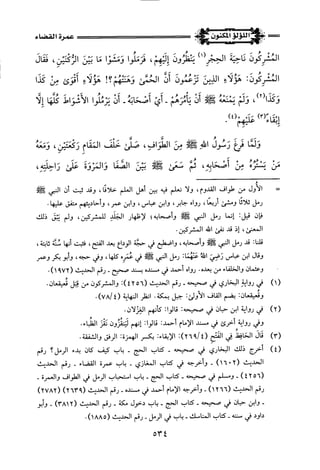 اللؤلؤ المكنون
عمرة القضاء
المُشْرِكُونَ نَاحِيَةَ الحِجْرِ(١) يَنْظُرُونَ إِلَيْهِمْ، فَرَمَلُوا وَمَشَوْا مَا بَيْنَ الرُّكْنَيْنِ، فَقَالَ
المُشْرِكُونَ: هَؤُلَاءِ الذِينَ تَزْعُمُونَ أَنَّ الحُمَّى وَهَنَتْهُمْ؟! هَؤُلَاءِ أَقْوَى مِنْ كَذَا
وَكَذَا(٢)، وَلَمْ يَمْنَعْهُ ﷺ أَنْ يَأْمُرَهُمْ - أَيْ أَصْحَابَهُ - أَنْ يَرْمُلُوا الأَشْوَاطَ كُلَّهَا إِلَّا
إِبْقَاءً(٣) عَلَيْهِمْ(٤).
وَلَمَّا فَرَغَ رَسُولُ اللهِ ﷺ مِنَ الطَّوَافِ، صَلَّى خَلْفَ المَقَامِ رَكْعَتَيْنِ، وَمَعَهُ
مَنْ يَسْتُرُهُ مِنْ أَصْحَابِهِ، ثُمَّ سَعَى ﷺ بَيْنَ الصَّفَا وَالمَرْوَةِ عَلَى رَاحِلَتِهِ،
= الأول من طواف القدوم، ولا نعلم فيه بين أهل العلم خلافًا، وقد ثبت أن النبي ﷺ
رمل ثلاثًا ومشى أربعًا، رواه جابر، وابن عباس، وابن عمر، وأحاديثهم متفق عليها.
فإن قيل: إنما رمل النبي ﷺ وأصحابه؛ لإظهار الجَلَد للمشركين، ولم يَبْقَ ذلك
المعنى، إذ قد نفى الله المشركين.
قلنا: قد رمل النبي ﷺ وأصحابه، واضطبع في حجَّة الوداع بعد الفتح، فثبت أنها سُنَّة ثابتة،
وقال ابن عباس رَضِيَ اللهُ عَنْهُمَا: رمل النبي ﷺ في عُمره كلها، وفي حجه، وأبو بكر وعمر
وعثمان والخلفاء من بعده. رواه أحمد في مسنده بسند صحيح - رقم الحديث (١٩٧٢)
(١) في رواية البخاري في صحيحه - رقم الحديث (٤٢٥٦): والمشركون من قِبَل قُعيقعان.
وقُعيقعان: بضم القاف الأولى: جبل بمكة. انظر النهاية (٧٨/٤).
(٢) في رواية ابن حبان في صحيحه: قالوا: كأنهم الغِزْلان.
وفي رواية أخرى في مسند الإمام أحمد: قالوا: إنهم لَيَنْقُزُون نَقْزَ الظِّباء.
(٣) قَالَ الحَافِظُ فِي الفَتْحِ (٢٦٩/٤): الإبقاء: بكسر الهمزة: الرفق والشفقة.
(٤) أخرج ذلك البخاري في صحيحه - كتاب الحج - باب كيف كان بدء الرمل؟ رقم
الحديث (١٦٠٢) - وأخرجه في كتاب المغازي - باب عمرة القضاء - رقم الحديث
(٤٢٥٦) - ومسلم في صحيحه - كتاب الحج - باب استحباب الرمل في الطواف والعمرة -
رقم الحديث (١٢٦٦) - وأخرجه الإمام أحمد في مسنده - رقم الحديث (٢٦٣٩) (٢٧٨٢)
- وابن حبان في صحيحه - كتاب الحج - باب دخول مكة - رقم الحديث (٣٨١٢) - وأبو
داود في سننه - كتاب المناسك - باب في الرمل - رقم الحديث (١٨٨٥).
٥٣٤